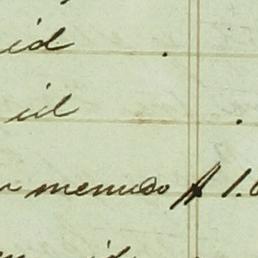 id .
id .
menudo $ 1.
id